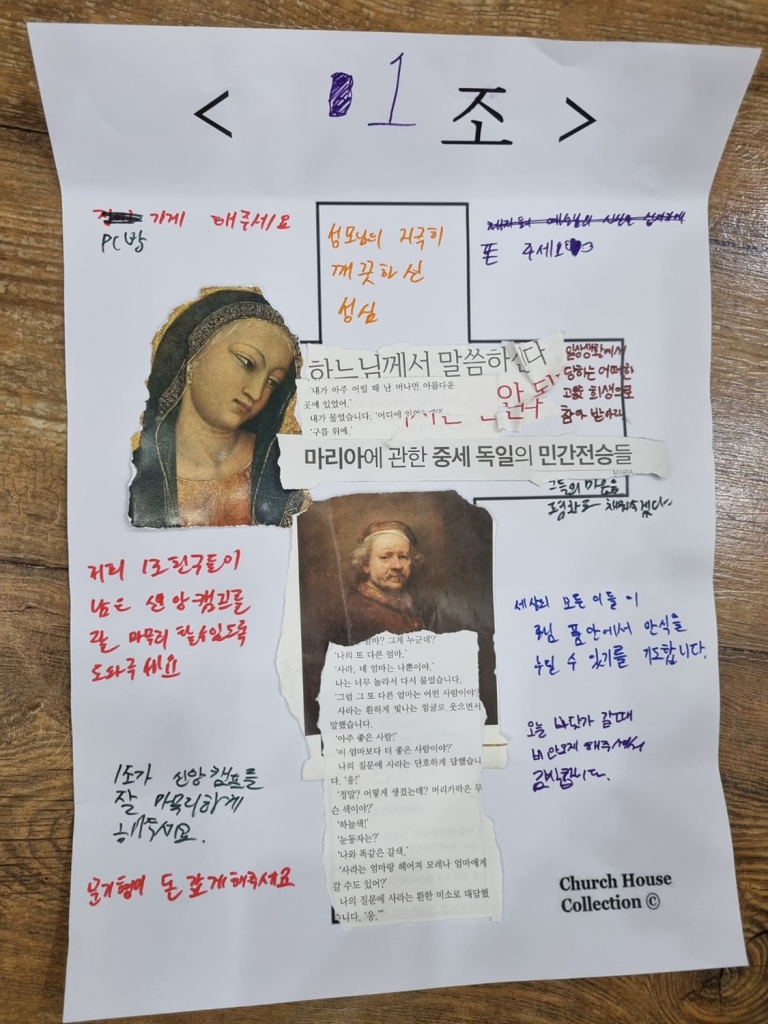 < 1조 >
가게 해주세요
PC방
폰 주세요
성모님의 지극히
깨끗하신
성심
하느님께서 말씀하신다
'내가 아주 어릴 때 난 머나먼 아름다운
곳에 있었어.'
내가 물었습니다. '어디에
'구름 위에.'
안
일상생활에서
당하는 어떠한
희생으로
참아 받아라
마리아에 관한 중세 독일의 민간전승들
MARIA
그들의 마음을
평화로 채워주겠다.
저희 1조 친구들이
남은 신앙캠프를
잘 마무리 할수있도록
도와주세요
세상의 모든 이들이
주님 품안에서 안식을
누릴 수 있기를 기도합니다.
엄마? 그게 누군데?'
'나의 또 다른 엄마.'
'사라, 네 엄마는 나뿐이야.'
나는 너무 놀라서 다시 물었습니다.
'그럼 그 또 다른 엄마는 어떤 사람이야?
사라는 환하게 빛나는 얼굴로 웃으면서
말했습니다.
'아주 좋은 사람!'
'이 엄마보다 더 좋은 사람이야?'
나의 질문에 사라는 단호하게 답했습니
다. '응!'
'정말? 어떻게 생겼는데? 머리카락은 무
슨 색이야?'
'하늘색!'
'눈동자는?'
'나와 똑같은 갈색.'
'사라는 엄마랑 헤어져 모레나 엄마에게
갈 수도 있어?'
나의 질문에 사라는 환한 미소로 대답했
습니다. '응.'"
오늘 바닷가 갈때
비 안오게 해주셔서
감사합니다.
1조가 신앙캠프를
잘 마무리하게
해주세요.
돈 갚게해주세요
Church House
Collection ©